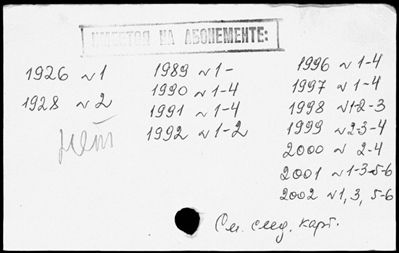 ИМЕЕТСЯ НА АБОНЕМЕНТЕ:
1926 №1
1928 № 2
нет
1989 №1-
1990 №1-4
1991 №1-4
1992 №1-2
1996 №1-4
1997 №1-4
1998 №1-2-3
1999 №2-3-4
2000 № 2-4
2001 №1-3-5-6
2002 №1,3,5-6
См. след. карт.